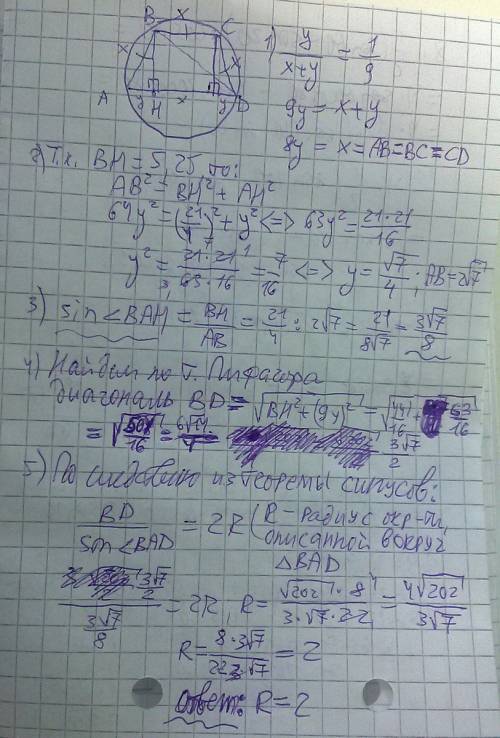 B x C
x x
A y H x y D
1) y/(x+y) = 1/9
9y = x+y
8y = x = AB=BC=CD
2) Т.к. BH = 5,25 то:
AB² = BH² + AH²
64y² = (21/4)² + y² <=> 63y² = 21·21/16
y² = 21·21/63·16 = 7/16 <=> y = √7/4; AB=2√7
3) sin∠BAH = BH/AB = 21/4 : 2√7 = 21/8√7 = 3√7/8
4) Найдём по т. Пифагора
диагональ BD = √(BH²+(9y)²) = √(441/16 + 63/16)
= 3√7/2
5) По следствию из теоремы синусов:
BD/sin∠BAD = 2R (R - радиус окр-ти,
описанной вокруг
△BAD
(3√7/2)/(3√7/8) = 2R, R = √202·8/3·√7·2·2 = 4√202/3√7
R = 8·3√7/2·2·3·√7 = 2
ответ: R=2